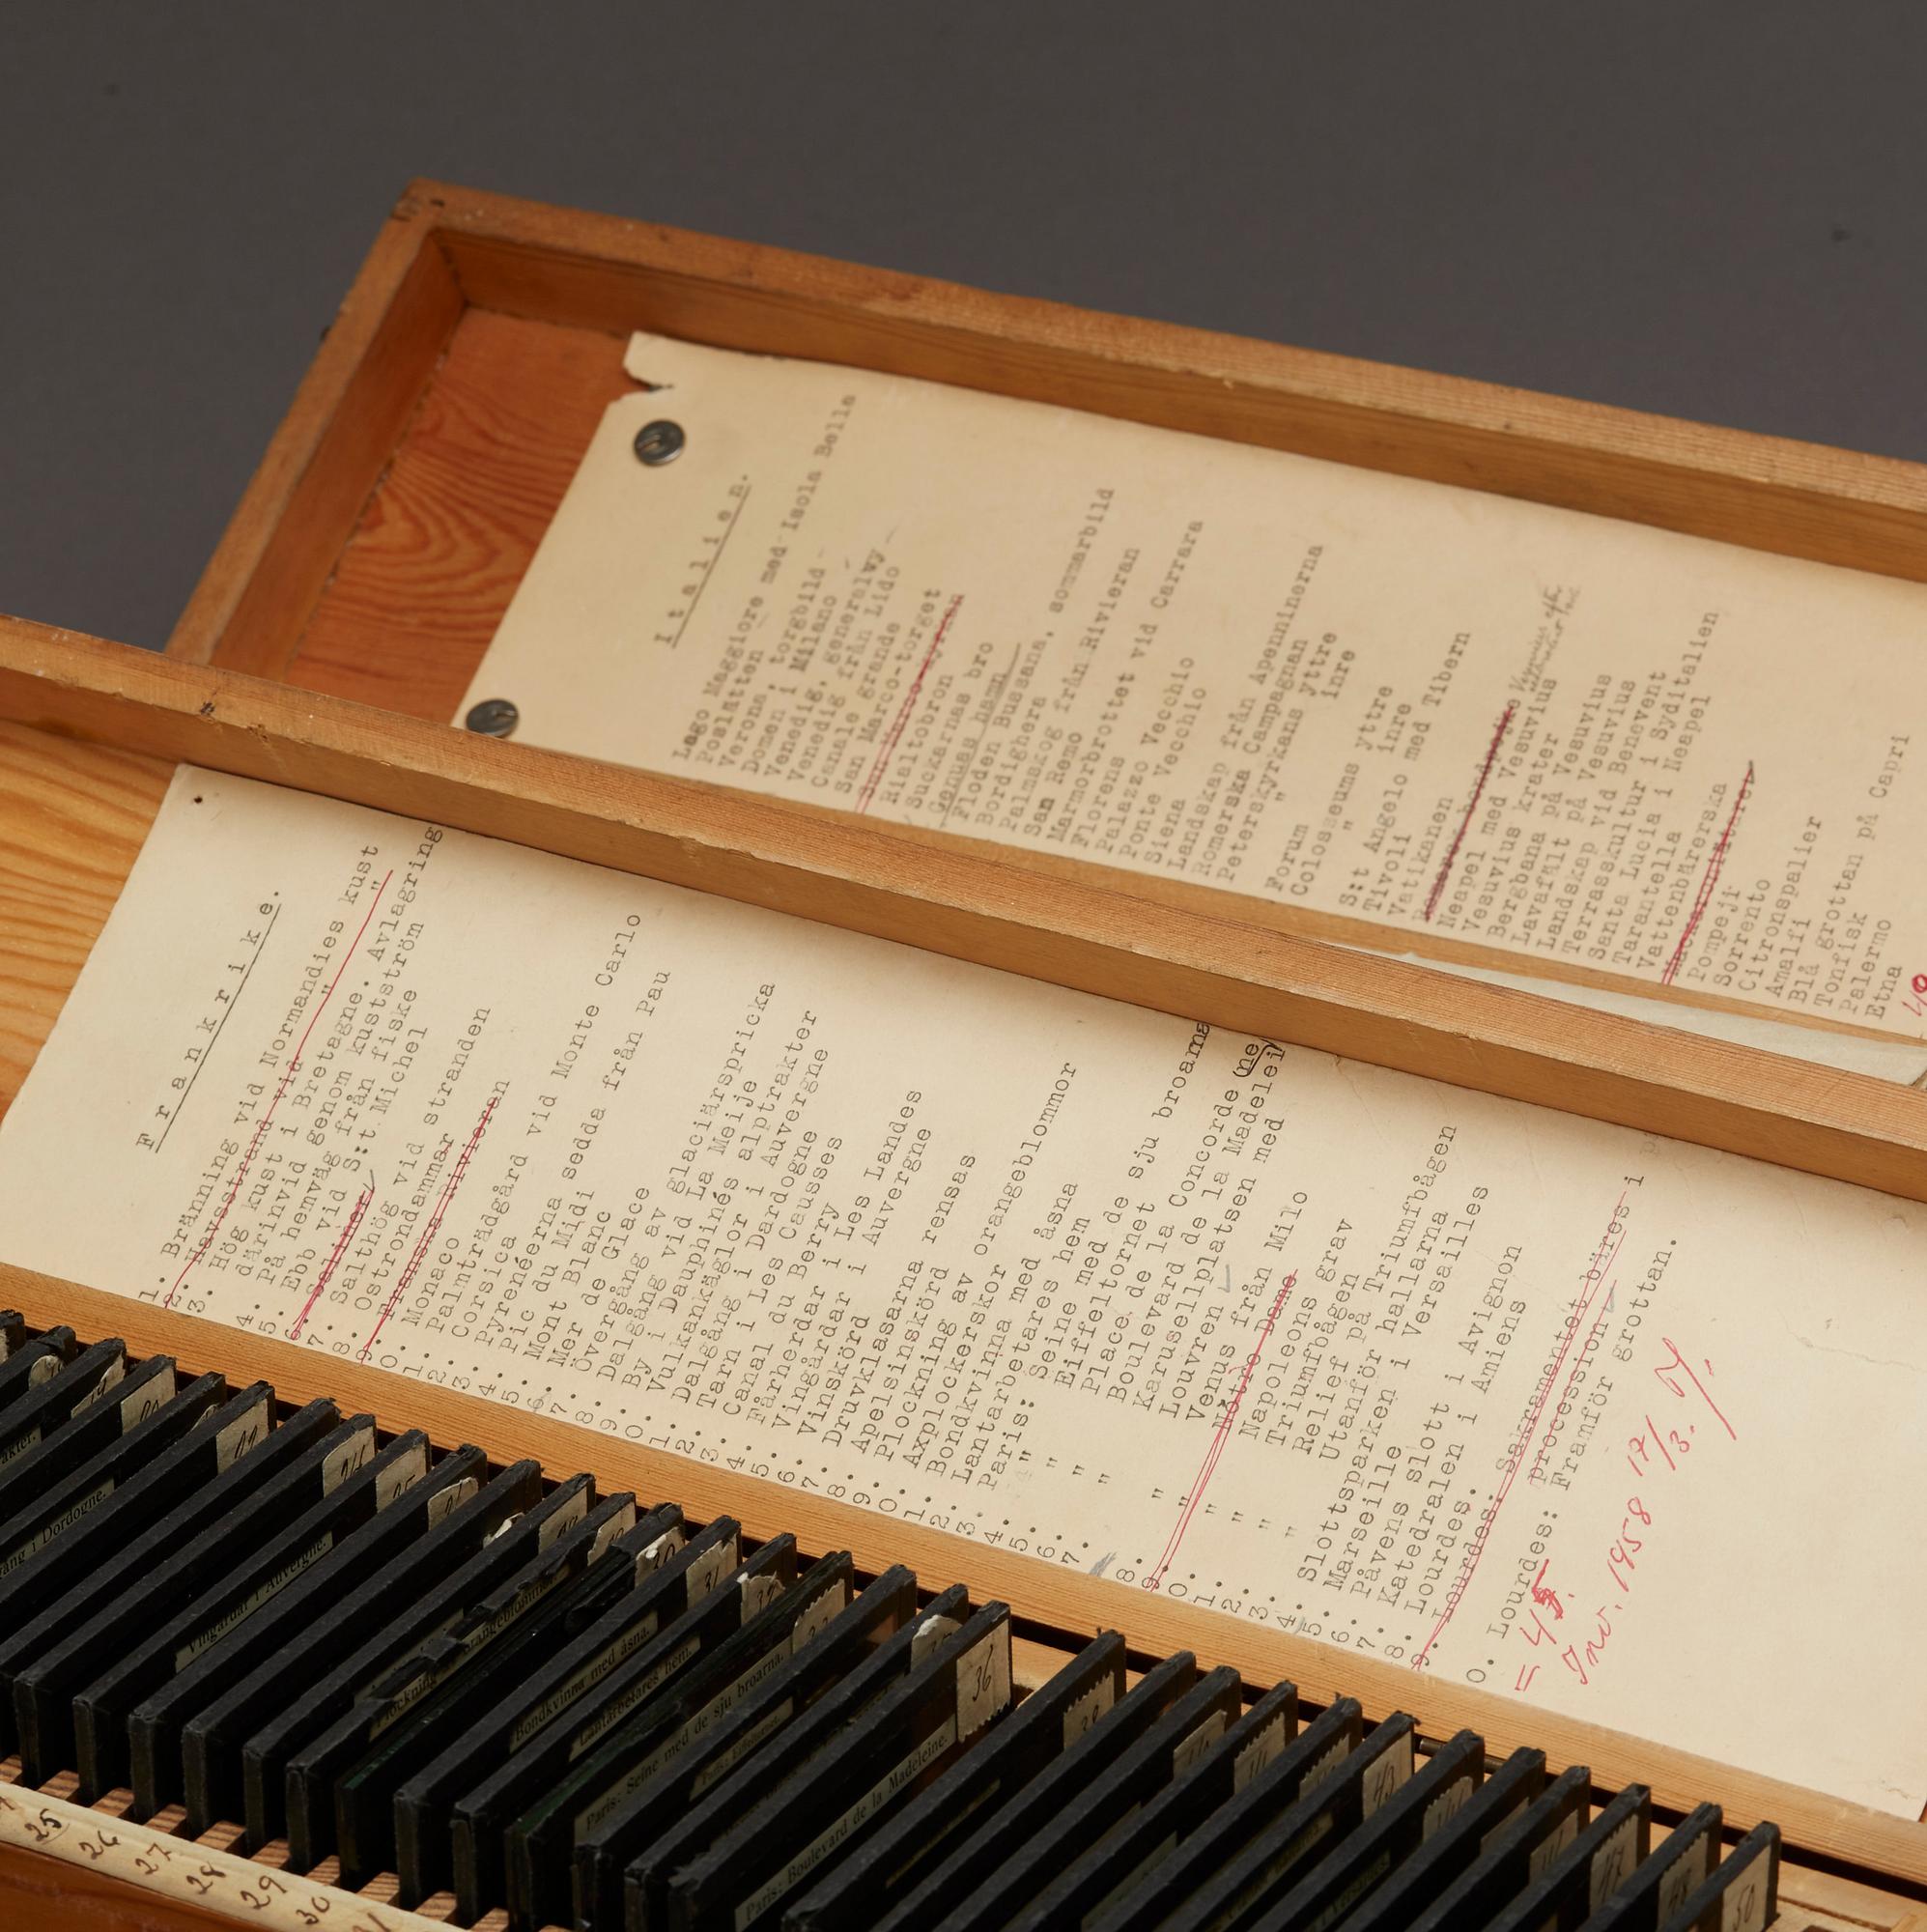 Italien.
Lago Maggiore med Isola Bella
Poslätten
Verona, torgbild
Domen i Milano
Venedig, generalvy
Venedig från Lido
Canale grande
San Marco-torget
Rialtobron
Suckarnas bro
Genuas hamn
Floden Bussana
Bordighera
Palmskog, sommarbild
San Remo från Rivieran
Marmorbrottet vid Carrara
Florens
Palazzo Vecchio
Ponte Vecchio
Siena
Landskap från Apenninerna
Romerska Campagnan
Peterskyrkans yttre
" inre
Forum
Colosseums yttre
" inre
S:t Angelo med Tibern
Tivoli
Vatikanen
Neapel med Vesuvius
Vesuvius krater
Bergbana på Vesuvius
Lavafält på Vesuvius
Landskap vid Benevent
Terrasskultur i Syditalien
Santa Lucia i Neapel
Tarantella
Vattenbärerska
Pompeji
Sorrento
Citronspalier
Amalfi
Blå grottan på Capri
Tonfisk
Palermo
Etna
Frankrike.
1. Bränning vid Normandies kust
2. Havsstrand vid " "
3. Hög kust i Bretagne. Avlagring
därinvid genom kustström
4. På hemväg från fiske
5. Ebb vid S:t Michel
6. Saliner
7. Salthög vid stranden
8. Ostrondammar
9. Franska Rivieran
0. Monaco
1. Palmträdgård vid Monte Carlo
2. Corsica
3. Pyrenéerna sedda från Pau
4. Pic du Midi
5. Mont Blanc
6. Mer de Glace
7. Övergång av glaciärspricka
8. Dalgång vid La Meije
9. By i Dauphinés alptrakter
0. Vulkankäglor i Auvergne
1. Dalgång i Dardogne
2. Tarn i Les Causses
3. Canal du Berry
4. Fårherdar i Les Landes
5. Vingårdar i Auvergne
6. Vinskörd
7. Druvklasarna rensas
8. Apelsinskörd
9. Plockning av orangeblommor
0. Axplockerskor
1. Bondkvinna med åsna
2. Lantarbetares hem
3. Paris: Seine med de sju broarna
4. " Eiffeltornet
5. " Place de la Concorde
6. " Boulevard de la Madelei(ne
7. " Karusellplatsen med
Louvren
8. " Venus från Milo
9. " Nôtre Dame
0. " Napoleons grav
1. " Triumfbågen
2. " Relief på Triumfbågen
3. " Utanför hallarna
4. Slottsparken i Versailles
5. Marseille
6. Påvens slott i Avignon
7. Katedralen i Amiens
8. Lourdes.
9. Lourdes: Sakramentet bäres i
procession
0. Lourdes: Framför grottan.
= 45.
Inv. 1958 17/3.
Vingårdar i Auvergne.
Bondkvinna med åsna.
Lantarbetares hem.
Paris: Seine med de sju broarna.
Paris: Eiffeltornet.
Paris: Boulevard de la Madeleine.
36
50
25
26
27
28
29
30
31